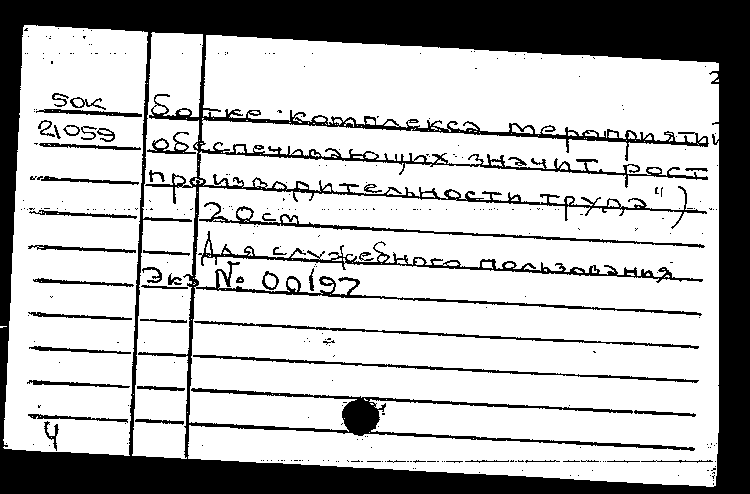 2
50к ботке комплекса мероприятий
21059 обеспечивающих значит. рост
производительности труда")
20см
Для служебного пользования
Экз № 00197
4